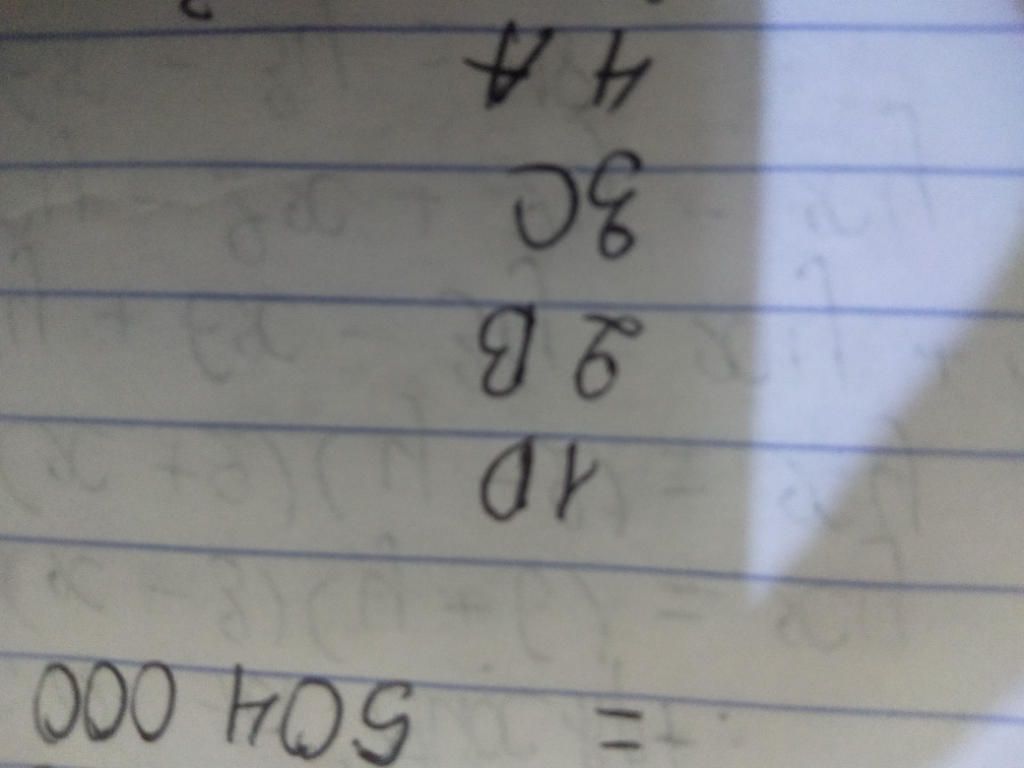 = 504 000
1D
2B
3C
4A